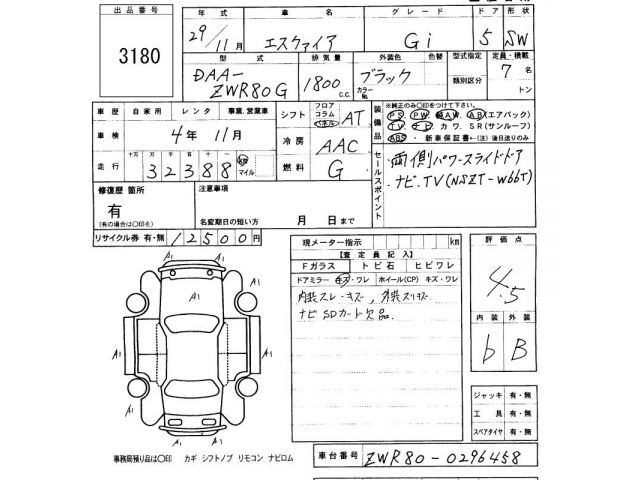 出品番号
3180
年式 車名 グレード ドア 形状
29/11月 エスクァイア Gi 5 SW
型式 排気量 外装色 色替 型式指定 定員・積載
DAA-ZWR80G 1800 c.c. ブラック カラーNo. 類別区分 7名 トン
車歴 自家用 レンタ 事業、営業車
車検 4年11月
走行 十万 万 千 百 十 一 32388 km マイル
シフト フロア コラム パネル AT
冷房 AAC
燃料 G
装備品
※純正のみ○印をつけて下さい。
PS PW AW AB(エアバック)
TV ナビ カワ. SR(サンルーフ)
ABS ・新車保証書←(注)後日送りのみ
セールスポイント
両側パワースライドドア
ナビ.TV(NSZT-W66T)
修復歴 箇所
有
(有の場合は○印を)
注意事項
名変期日の短い方 月 日まで
リサイクル券 有・無 12500円
現メーター指示 km
【査定員記入】
Fガラス トビ石 ヒビワレ
ドアミラー キズ・ワレ ホイール(CP) キズ・ワレ
内装スレ・キズ, 外装スリキズ
ナビSDカード欠品.
評価点
4.5
内装 外装
b B
A1
A1
A1
A1
A1
A1
ジャッキ 有・無
工具 有・無
スペアタイヤ 有・無
事務局預り品は○印 カギ シフトノブ リモコン ナビロム
車台番号 ZWR80-0296458